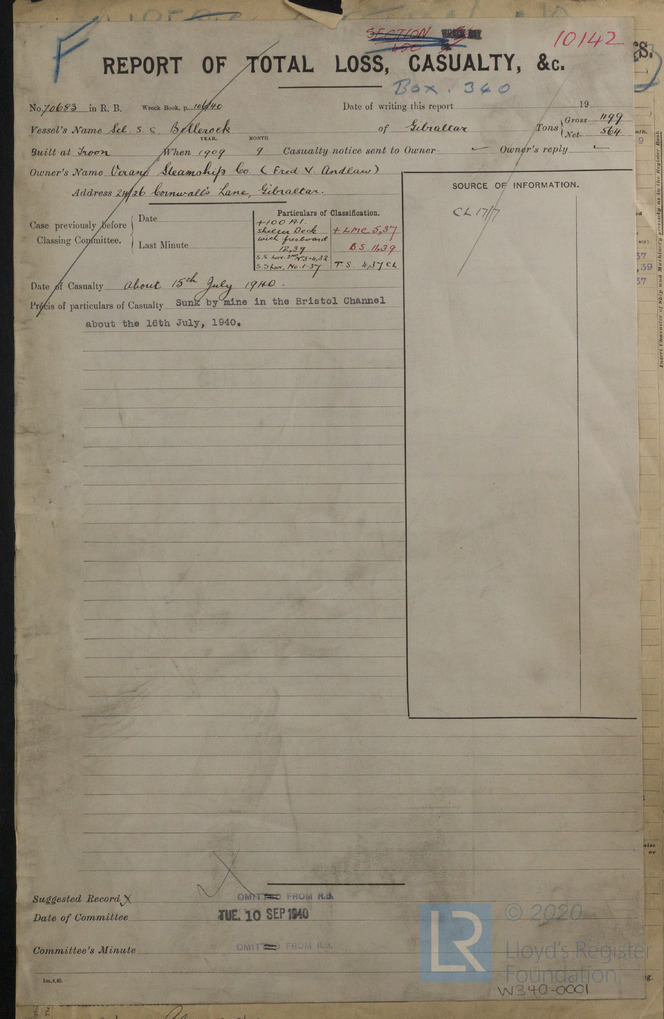 F
SECTION
10142
REPORT OF TOTAL LOSS, CASUALTY, &c.
Box. 340
No. 70683 in R. B. Wreck Book, p. Date of writing this report 19
Vessel's Name Sel S. S. Bellerock of Gibraltar Tons Gross 1199
Net 564
YEAR. MONTH.
Built at Troon When 1909 9 Casualty notice sent to Owner Owner's reply
Owner's Name Steamship Co (Fred V Andlaw)
Address 24/26 Cornwall's Lane, Gibraltar.
SOURCE OF INFORMATION.
CL 17/7
Case previously before Classing Committee.
Date
Last Minute
Particulars of Classification.
+100 A1.
Shelter Deck
with freeboard
12,39
+LMC 5,37
BS 11,39
TS 4,37 CL
Date of Casualty about 15th July 1940.
Précis of particulars of Casualty Sunk by mine in the Bristol Channel
about the 16th July, 1940.
Suggested Record OMITTED FROM R.B.
Date of Committee TUE. 10 SEP 1940
Committee's Minute OMITTED FROM R.B.
LR
© 2020
Lloyd's Register
Foundation
W340-0001